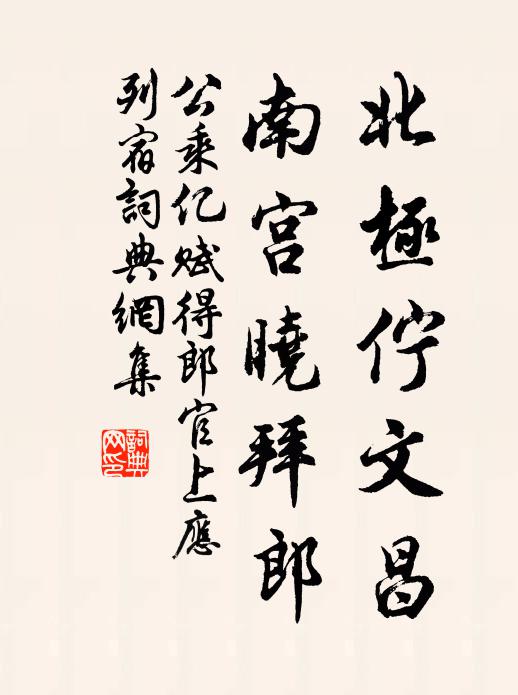 北極佇文昌
南宮曉拜郎
公乘亿賦得郎官上應
列宿詞典網集
詞典網印